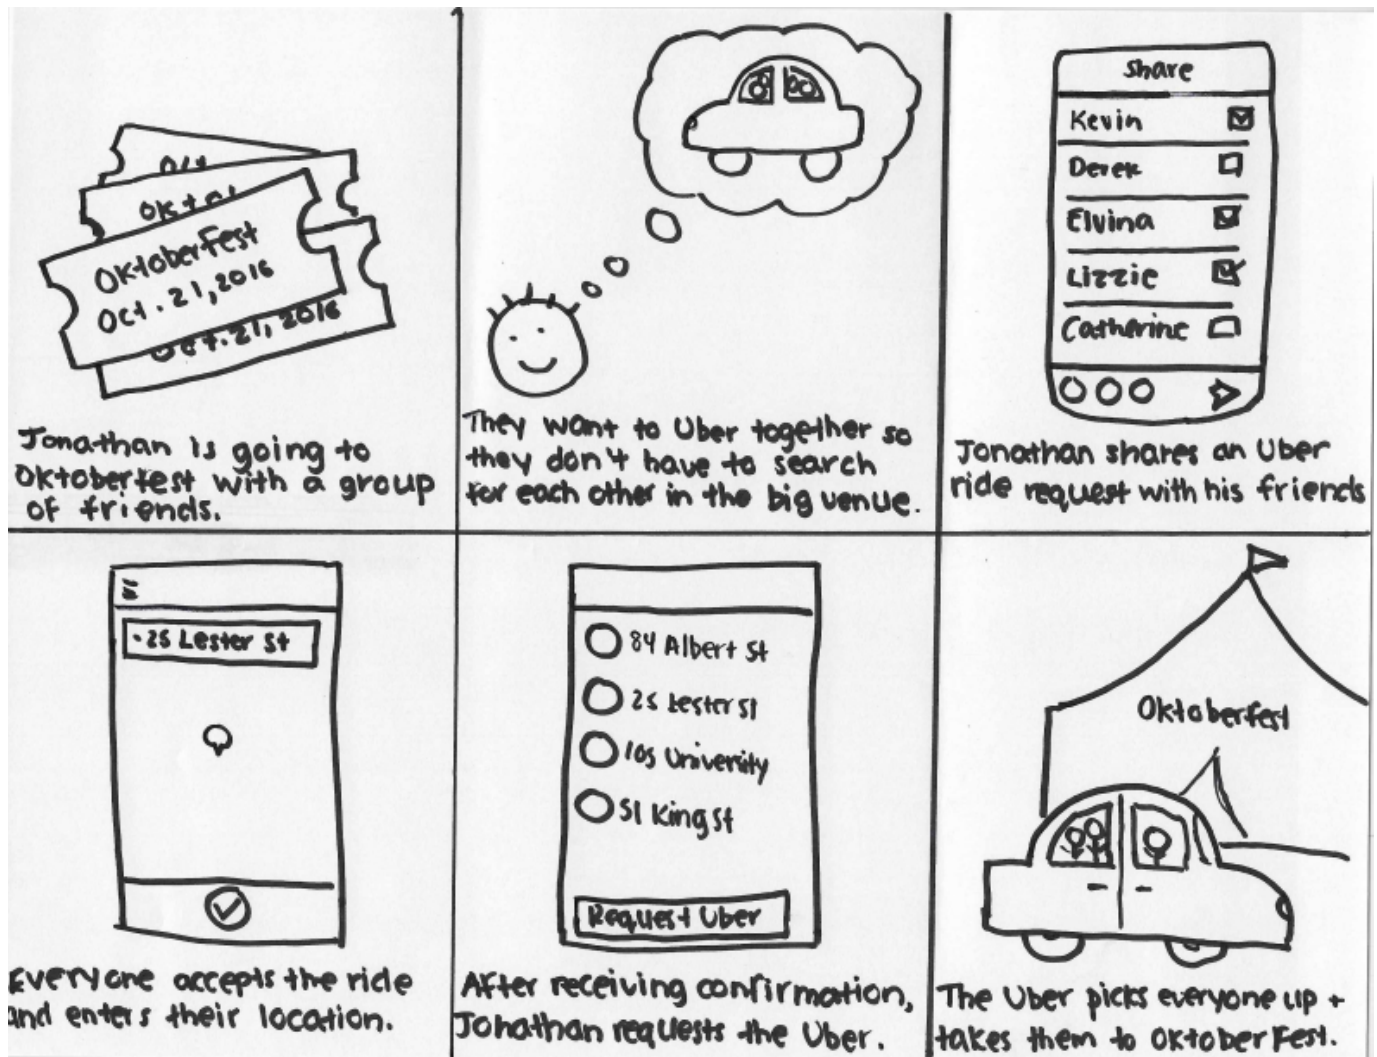 Okt
Okto
Oktoberfest
Oct. 21, 2016
Oct. 21, 2016
Jonathan is going to
Oktoberfest with a group
of friends.
They want to Uber together so
they don't have to search
for each other in the big venue.
Share
Kevin
Derek
Elvina
Lizzie
Catherine
Jonathan shares an Uber
ride request with his friends
25 Lester St
Everyone accepts the ride
and enters their location.
84 Albert St
25 Lester St
105 University
51 King St
Request Uber
After receiving confirmation,
Jonathan requests the Uber.
Oktoberfest
The Uber picks everyone up +
takes them to Oktoberfest.